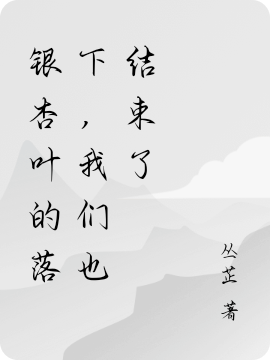 银杏叶的落
下，我们也
结束了
丛芷著